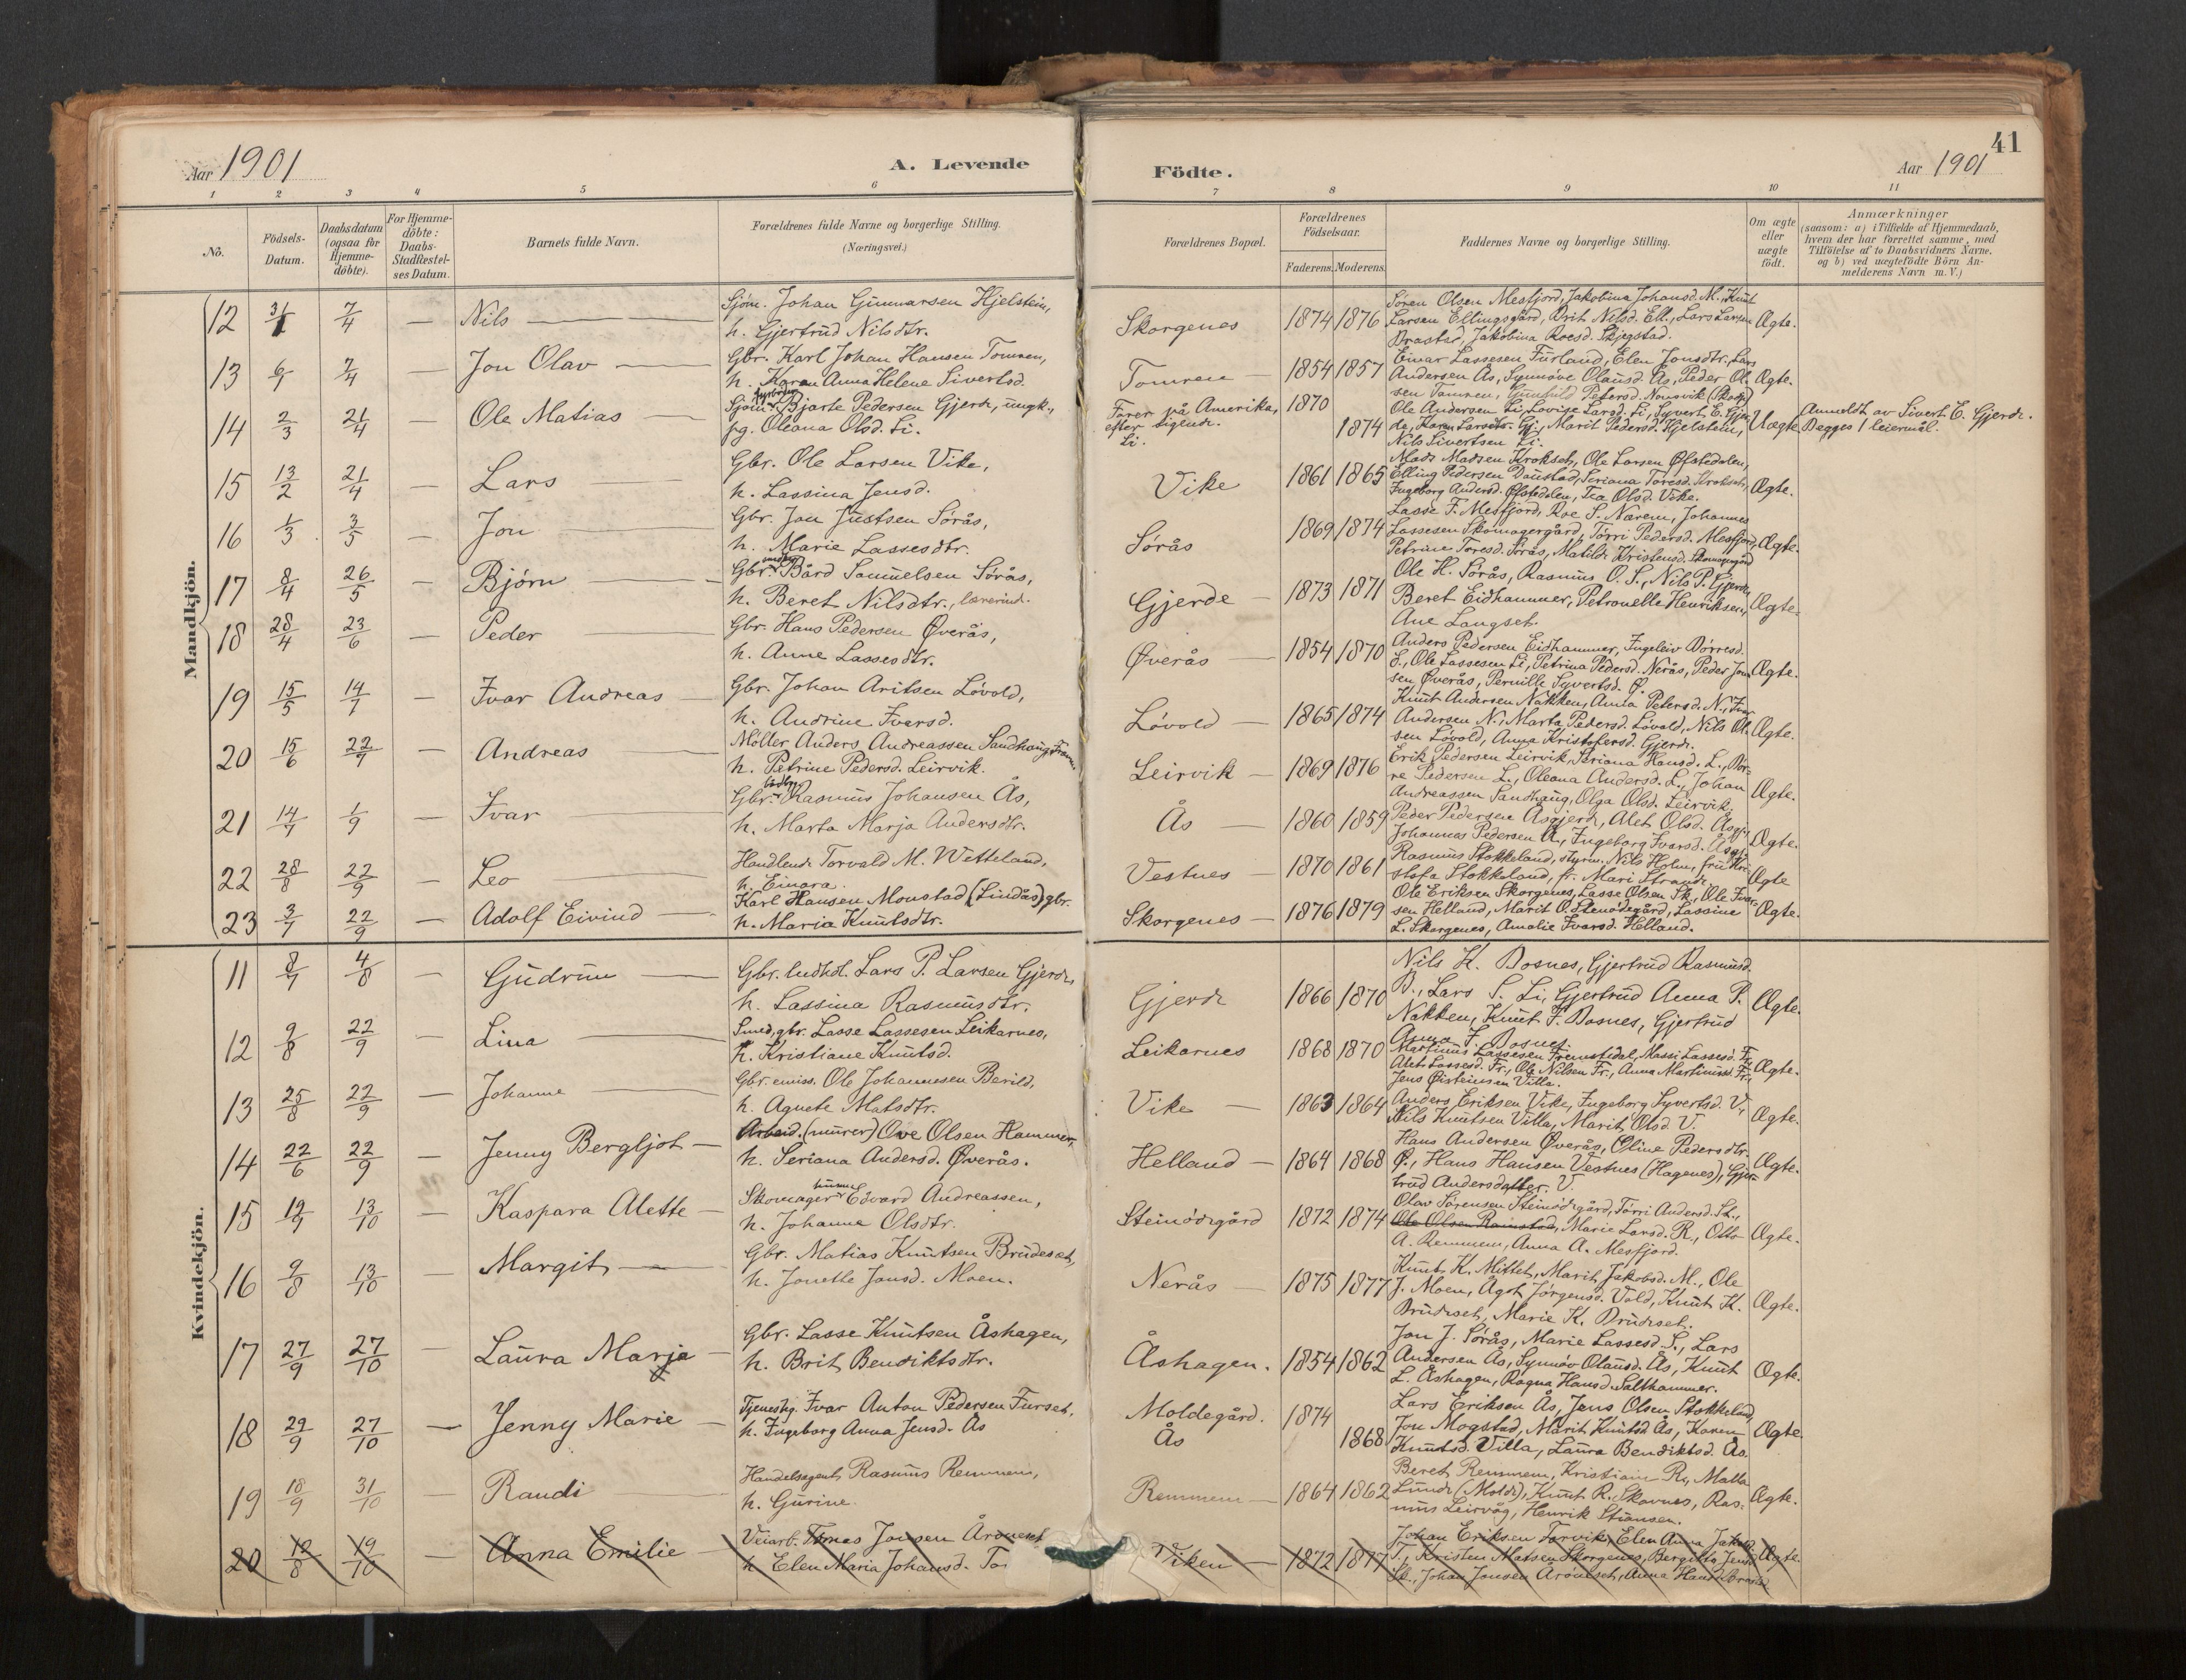 Aar 1901
A. Levende
Födte.
Aar 1901
41
1 2 3 4 5 6 7 8 9 10 11
No.
Födsels-Datum.
Daabsdatum (ogsaa for Hjemme-döbte).
For Hjemme-döbte: Daabs-Stadfæstel-ses Datum.
Barnets fulde Navn.
Forældrenes fulde Navne og borgerlige Stilling.
(Næringsvei.)
Forældrenes Bopæl.
Forældrenes Födselsaar.
Faderens. Moderens.
Faddernes Navne og borgerlige Stilling.
Om ægte eller uægte födt.
Anmærkninger
(saasom: a) i Tilfælde af Hjemmedaab, hvem der har forrettet samme, med Tilföielse af to Daabsvidners Navne, og b) ved uægtefödte Börn An-melderens Navn m. V.)
Mandkjön.
12 31/1 7/4 — Nils — Sjøm. Johan Gunnarsen Hjelstein,
h. Gjertrud Nilsdtr.
Skorgenes 1874 1876
Søren Olsen Mesfjord, Jakobina Johansd. M., Knut
Larsen Ellingsgård, Brit Nilsd. Ell., Lars Larsen
Brastad, Jakobina Roesd. Skjegstad.
Ægte.
13 6/1 7/4 — Jon Olav — Gbr. Karl Johan Hansen Tomren,
h. Karen Anna Helene Sivertsd.
Tomren — 1854 1857
Einar Lassesen Furland, Elen Jonsdtr., Lars
Andersen Ås, Synnøve Olausd. Ås, Peder Ol-
sen Tomren, Gunhild Petersd.
Ægte.
14 2/3 21/4 — Ole Matias — Sjøm. Bjarte Pedersen Gjerde, ungk.,
pg. Oleana Olsd. Li.
Farer på Amerika,
efter sigende.
Li.
1870
1874
Ole Andersen Li, Lovise Larsd. Li, Syvert E. Gjer-
de, Karen Larsdtr. Gj., Marit Pedersd. Hjelstein,
Nils Sivertsen Li.
Uægte.
Anmeldt av Sivert E. Gjerde.
Begges 1 leiermål.
15 13/2 21/4 — Lars — Gbr. Ole Larsen Vike,
h. Lassina Jensd.
Vike 1861 1865
Mads Madsen Krokset, Ole Larsen Øfstedalen,
Elling Pedersen Daustad, Seriana Toresd. Krokset,
Ingeborg Andersd. Øfstedalen, Tea Olsd. Vike.
Ægte.
16 1/3 3/5 — Jon — Gbr. Jon Justsen Sørås,
h. Marie Lassesdtr.
Sørås 1869 1874
Lasse F. Mesfjord, Roe S. Nærem, Johannes
Lassesen Skomagergård, Tørri Pedersd. Mesfjord,
Petrine Toresd. Sørås, Matilde Kristensd. Skomagergård
Ægte.
17 8/4 26/5 — Bjørn — Gbr. Bård Samuelsen Sørås,
h. Beret Nilsdtr., lærerind.
Gjerde — 1873 1871
Ole H. Sørås, Rasmus O. S., Nils P. Gjerde,
Beret Eidhammer, Petronelle Henriksen,
Ane Langset.
Ægte.
18 28/4 23/6 — Peder — Gbr. Hans Pedersen Øverås,
h. Anne Lassesdtr.
Øverås — 1854 1870
Anders Pedersen Eidhammer, Ingeleiv Børresd.
E., Ole Lassesen Li, Petrina Pedersd. Nerås, Peder Jon-
sen Øverås, Pernille Syvertsd. Ø.
Ægte.
19 15/5 14/7 — Ivar Andreas — Gbr. Johan Aritsen Løvold,
h. Andrine Ivarsd.
Løvold — 1865 1874
Knut Andersen Nakken, Anna Petersd. N., Ivar
Andersen N., Marta Pedersd. Løvold, Nils Ol-
sen Løvold, Anna Kristofersd. Gjerde.
Ægte.
20 15/6 22/7 — Andreas — Møller Anders Andreassen Sandhaug,
h. Petrine Pedersd. Leirvik.
Leirvik — 1869 1876
Erik Pedersen Leirvik, Seriana Hansd. L., Bør-
re Pedersen L., Oleana Andersd. L., Johan
Andreassen Sandhaug, Olga Olsd. Leirvik.
Ægte.
21 14/7 1/9 — Ivar — Gbr. Rasmus Johansen Ås,
h. Marta Marja Andersdtr.
Ås — 1860 1859
Peder Pedersen Åsgjerde, Alet Olsd. Åsgj.,
Johannes Pedersen Å., Ingeborg Ivarsd. Åsgj.
Ægte.
22 28/8 22/9 — Leo — Handlende Torvald M. Wetteland,
h. Einara.
Vestnes — 1870 1861
Rasmus Stokkeland, styrm. Nils Holm, fru Kri-
stofa Stokkeland, fr. Mari Strande.
Ægte
23 3/7 22/9 — Adolf Eivind — Karl Hansen Monstad (Lindås) gbr.
h. Maria Knutsdtr.
Skorgenes — 1876 1879
Ole Eriksen Skorgenes, Lasse Olsen Sk., Ole Ivar-
sen Helland, Marit O. Stenødegård, Lassine
L. Skorgenes, Amalie Ivarsd. Helland.
Ægte.
Kvindekjön.
11 8/7 4/8 — Gudrun — Gbr. lndhdl. Lars P. Larsen Gjerde,
h. Lassina Rasmusdtr.
Gjerde 1866 1870
Nils K. Bosnes, Gjertrud Rasmusd.
B., Lars S. Li, Gjertrud Anna P.
Nakken, Knut F. Bosnes, Gjertrud
Anna F. Bosnes.
Ægte.
12 9/8 22/9 — Lina — Smed, gbr. Lasse Lassesen Leikarnes,
h. Kristiane Knutsd.
Leikarnes 1868 1870
Martinus Lassesen Fremstedal, Massi Lassesd. Fr.,
Alet Lassesd. Fr., Ole Nilsen Fr., Anna Martinusd. Fr.,
Jens Øisteinsen Villa.
Ægte.
13 25/8 22/9 — Johanne — Gbr. emiss. Ole Johannesen Berild,
h. Agnete Matsdtr.
Vike — 1863 1864
Anders Eriksen Vike, Ingeborg Syvertsd. V.,
Nils Knutsen Villa, Marit Olsd. V.
Ægte.
14 22/6 22/9 — Jenny Bergljot — Arbeid. (murer) Ove Olsen Hammer,
h. Seriana Andersd. Øverås.
Helland — 1864 1868
Hans Andersen Øverås, Oline Pedersdtr.
Ø., Hans Hansen Vestnes (Hagenes), Gjer-
trud Andersdatter. V.
Ægte.
15 19/9 13/10 — Kaspara Alette — Skomager Edvard Andreassen,
h. Johanne Olsdtr.
Steinødegård 1872 1874
Olav Sørensen Steinødegård, Tørri Andersd. St.,
Ole Olsen Ramstad, Marie Larsd. R., Otto
A. Remmem, Anna A. Mesfjord.
Ægte.
16 9/8 13/10 — Margit — Gbr. Matias Knutsen Brudeset,
h. Jonette Jonsd. Moen.
Nerås — 1875 1877
Knut K. Mittet, Marit Jakobsd. M., Ole
J. Moen, Ågot Jørgensd. Vold, Knut K.
Brudeset, Marie K. Brudeset.
Ægte.
17 27/9 27/10 — Laura Marja — Gbr. Lasse Knutsen Åshagen,
h. Brit Bendiktsdtr.
Åshagen. 1854 1862
Jon J. Sørås, Marie Lassesd. S., Lars
Andersen Ås, Synnøv Olausd. Ås, Knut
L. Åshagen, Ragna Hansd. Salthammer.
Ægte.
18 29/9 27/10 — Jenny Marie — Tjenestg. Ivar Anton Pedersen Furset,
h. Ingeborg Anna Jensd. Ås
Moldegård.
Ås
1874
1868
Lars Eriksen Ås, Jens Olsen Stokkeland,
Jon Mogstad, Marit Knutsd. Ås, Karen
Knutsd. Villa, Laura Bendiktsd. Ås.
Ægte.
19 18/9 31/10 — Randi — Handelsagent Rasmus Remmem,
h. Gurine.
Remmem — 1864 1862
Beret Remmem, Kristian R., Malla
Lunde (Molde), Knut R. Skavnes, Ras-
mus Leirvåg, Henrik Stiansen.
Ægte.
20 12/8 19/10 — Anna Emilie — Veiarb. Tomas Jonsen Årøneset
h. Elen Maria Johansd. Tor
Viken — 1872 1877
Johan Eriksen Torvik, Elen Anna Jakobsd.
T., Kristen Matsen Skorgenes, Bergitta Jensd.
Sk., Johan Jonsen Årøneset, Anna Hansd. Brastad
Ægte.